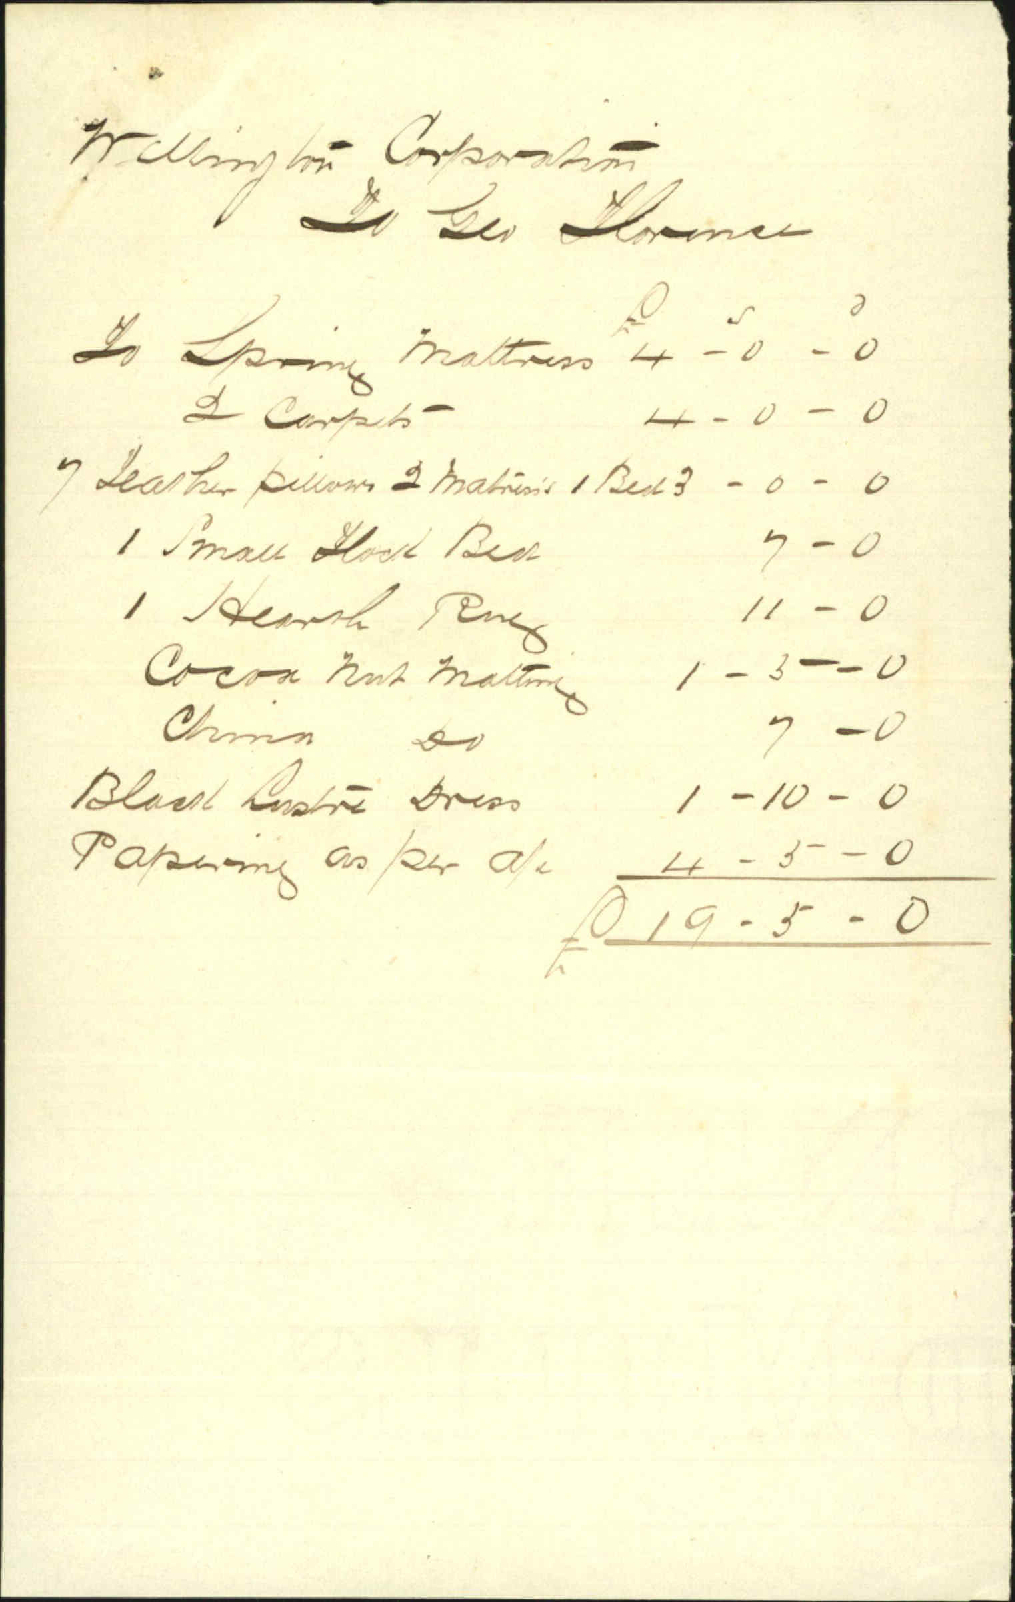 Wellington Corporation
To Geo Florence
£ s d
To Spring Mattress 4 - 0 - 0
2 Carpets 4 - 0 - 0
7 Feather pillows 2 Matress's 1 Bed 3 - 0 - 0
1 Small Flock Bed 7 - 0
1 Hearth Rug 11 - 0
Cocoa Nut Matting 1 - 5 - 0
China Do 7 - 0
Black Lustre Dress 1 - 10 - 0
Papering as per a/c 4 - 5 - 0
£ 19 - 5 - 0